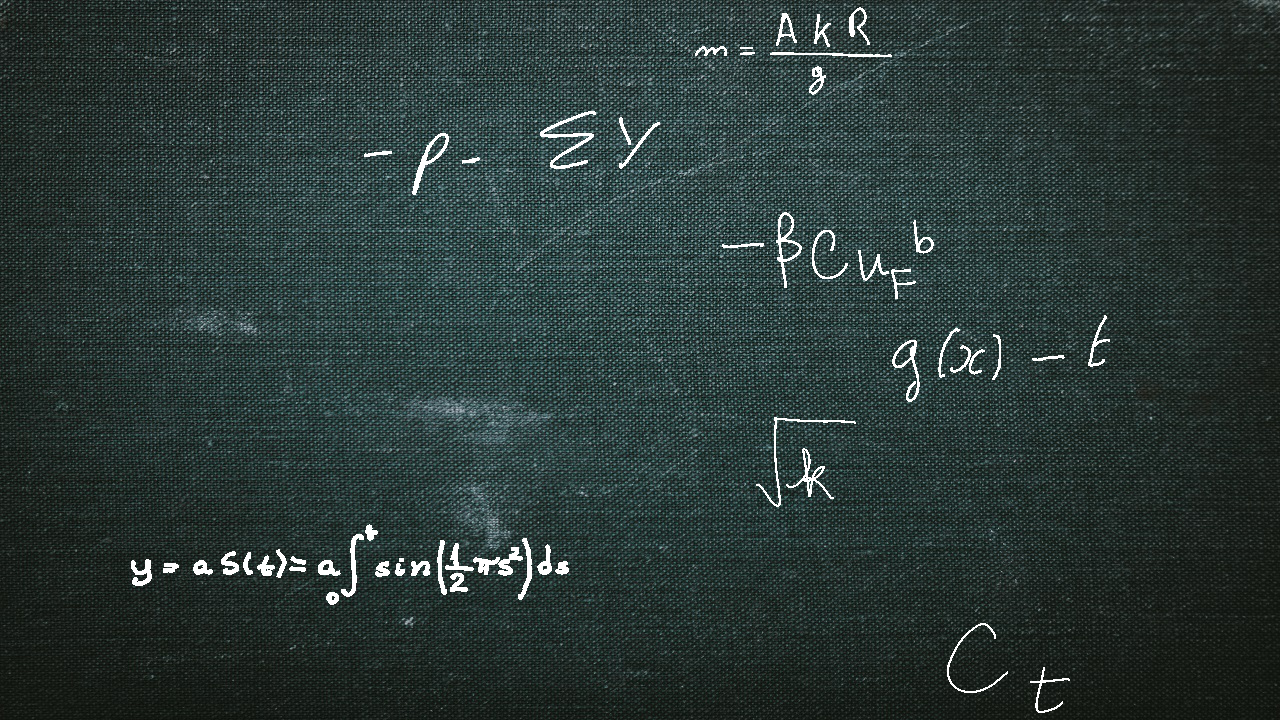 m = \frac{A k R}{g}
- ρ - Σ Y
- β C u_F^b
g(x) - t
√k
y = a S(t) = a ∫_0^t sin(\frac{1}{2} π s^2) ds
C_t